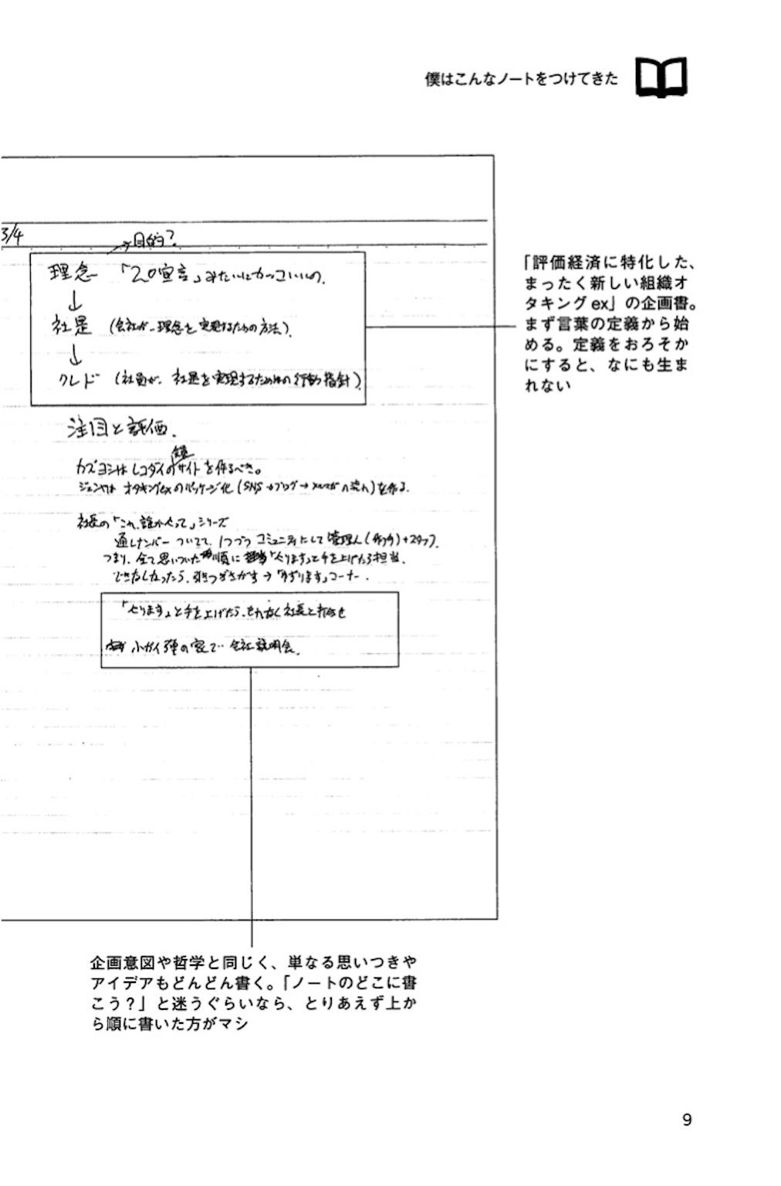 僕はこんなノートをつけてきた
3/4
→目的?
理念 「2.0宣言」みたいにカッコいいの。
↓
社是 (会社が、理念を実現するための方法)
↓
クレド (社員が、社是を実現するための行動指針)
注目と評価
カズヨシはレコダイの サイトを作るべき。
オタキングexのパッケージ化 (SNS→ブログ→メルマガの流れ)を作る。
社長の「これ、誰かやって」シリーズ
通しナンバーついてて、1つづつコミュニティにして管理人 +スタッフ
つまり、全て思いついた順に 「やります」と手を上げたら担当。
できなくなったら、引きつぎさがす→ コーナー.
「やります」と手を上げたら、もれなく社長と打合せ
の家で 会社説明会
「評価経済に特化した、
まったく新しい組織オ
タキングex」の企画書。
まず言葉の定義から始
める。定義をおろそか
にすると、なにも生ま
れない
企画意図や哲学と同じく、単なる思いつきや
アイデアもどんどん書く。「ノートのどこに書
こう?」と迷うぐらいなら、とりあえず上か
ら順に書いた方がマシ
9